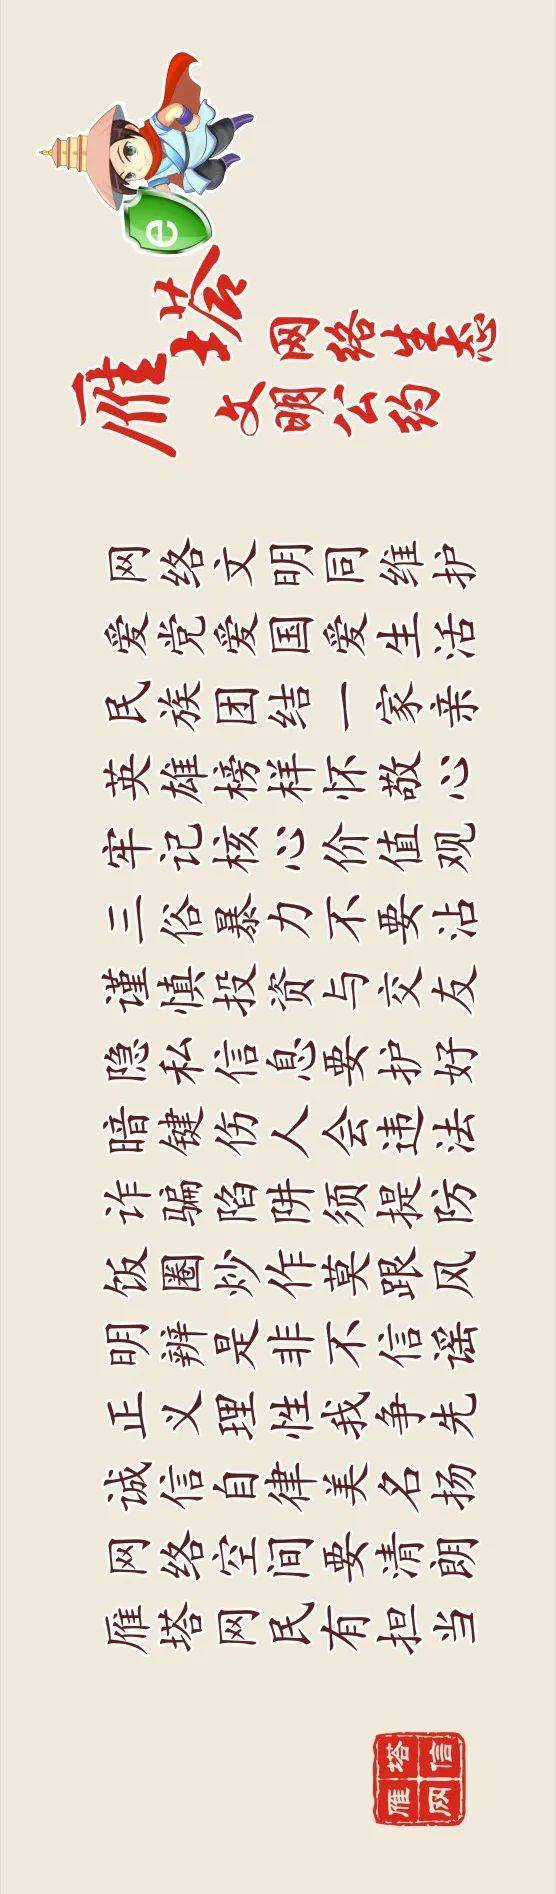 e
雁塔
网络生态
文明公约
网络文明同维护
爱党爱国爱生活
民族团结一家亲
英雄榜样怀敬心
牢记核心价值观
三俗暴力不要沾
谨慎投资与交友
隐私信息要护好
暗键伤人会违法
诈骗陷阱须提防
饭圈炒作莫跟风
明辨是非不信谣
正义理性我争先
诚信自律美名扬
网络空间要清朗
雁塔网民有担当
雁塔
网信